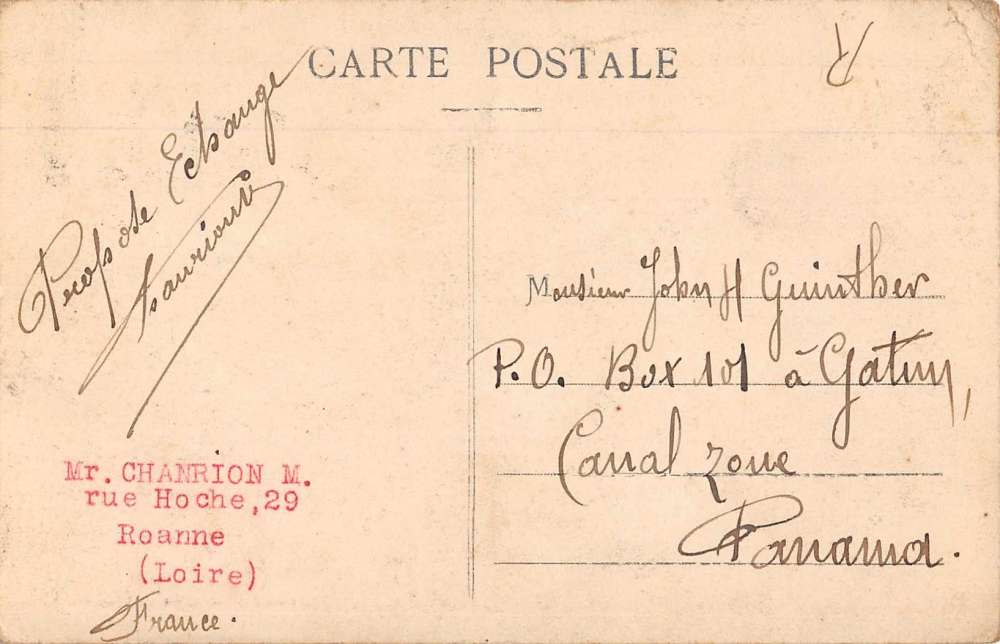 CARTE POSTALE
Propose Echange
Mr. CHANRION M.
rue Hoche, 29
Roanne
(Loire)
France.
Monsieur John H Guinther
P.O. Box 101 à Gatun,
Canal Zone
Panama.